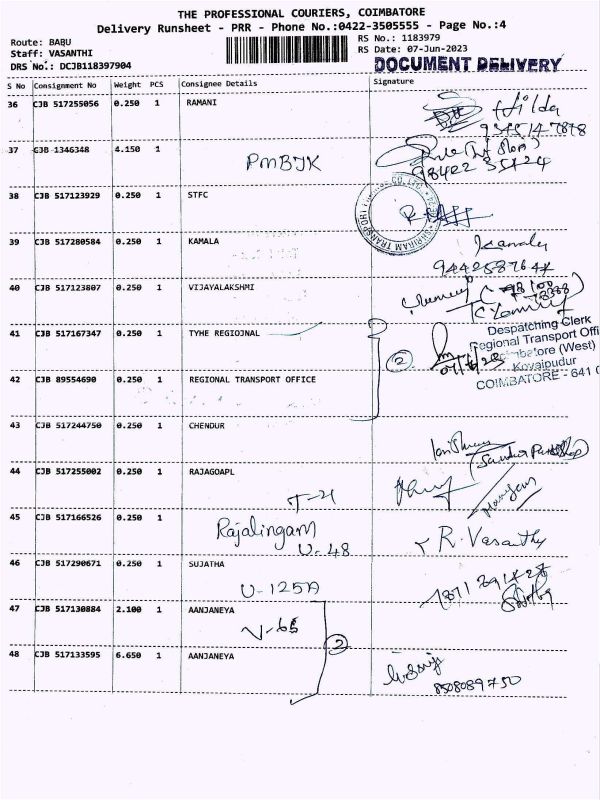 THE PROFESSIONAL COURIERS, COIMBATORE
Delivery Runsheet - PRR - Phone No.:0422-3505555 - Page No.:4
Route: BABU
RS No.: 1183979
Staff: VASANTHI
RS Date: 07-Jun-2023
DRS No.: DCJB118397904
DOCUMENT DELIVERY
S No Consignment No Weight PCS Consignee Details Signature
36 CJB 517255056 0.250 1 RAMANI
Hilda
37 CJB 1346348 4.150 1
PMBJK
98422 35424
38 CJB 517123929 0.250 1 STFC
39 CJB 517280584 0.250 1 KAMALA
Kamala
40 CJB 517123807 0.250 1 VIJAYALAKSHMI
41 CJB 517167347 0.250 1 TYHE REGIOJNAL
2
Despatching Clerk
Regional Transport Offi
Coimbatore (West)
Kovaipudur
COIMBATORE - 641 0
42 CJB 89554690 0.250 1 REGIONAL TRANSPORT OFFICE
43 CJB 517244750 0.250 1 CHENDUR
44 CJB 517255002 0.250 1 RAJAGOAPL
T-21
45 CJB 517166526 0.250 1
Rajalingam
U-48
R. Vasanthy
46 CJB 517290671 0.250 1 SUJATHA
U-125A
47 CJB 517130884 2.100 1 AANJANEYA
V-65
2
48 CJB 517133595 6.650 1 AANJANEYA
8508089750